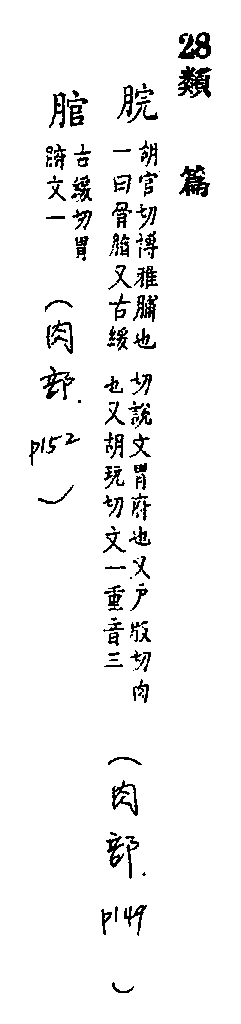 28類篇
脘
胡官切博雅脯也
一曰骨脂又古緩
切說文胃府也又戶版切肉
也又胡玩切文一重音三
(肉部. p149)
古緩切胃
文一
(肉部. p152)